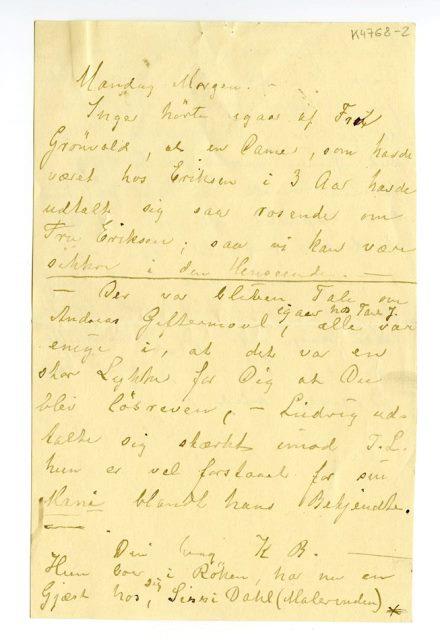 K4768-2
Mandag Morgen. -
Inger hörte igaar af Frk
Grönvold, at en Dame, som havde
været hos Eriksen i 3 Aar havde
udtalt sig saa rosende om
Fru Eriksen; saa vi kan være
sikker i den Henseende. -
- Der var bleven Tale om
igaar hos Tante J.
Andreas Giftermaal, alle var
enige i, at det var en
stor Lykke for Dig at Du
blev lösreven, - Ludvig ud=
talte sig stærkt imod T.L.
hun er vel forstaaet for sin
Mani blandt hans Bekjendte.
Din K B.
Hun bor i Röken, har nu en
Gjæst hos sig, Sissi Dahl (Malerinden) *